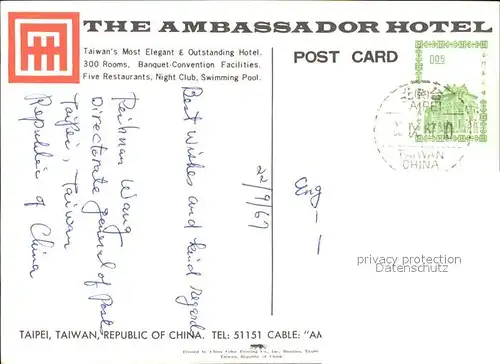 THE AMBASSADOR HOTEL
Taiwan's Most Elegant & Outstanding Hotel.
300 Rooms, Banquet-Convention Facilities.
Five Restaurants, Night Club, Swimming Pool.
POST CARD
005
TAIPEI
TAIWAN
CHINA
Best Wishes and kind regards
Wang
Directorate General of Posts
Taipei, Taiwan
Republic of China
22/9/67
privacy protection
Datenschutz
TAIPEI, TAIWAN, REPUBLIC OF CHINA. TEL: 51151 CABLE: "AM
Printed by China Color Printing Co., Inc.
Taiwan, Republic of China